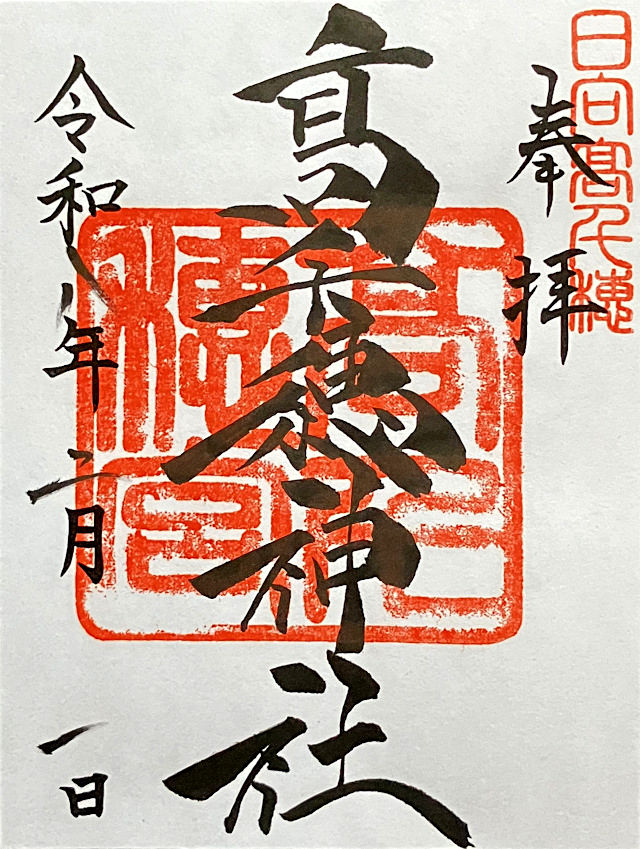 日向高千穂
奉拝
高千穂神社
令和八年二月一日